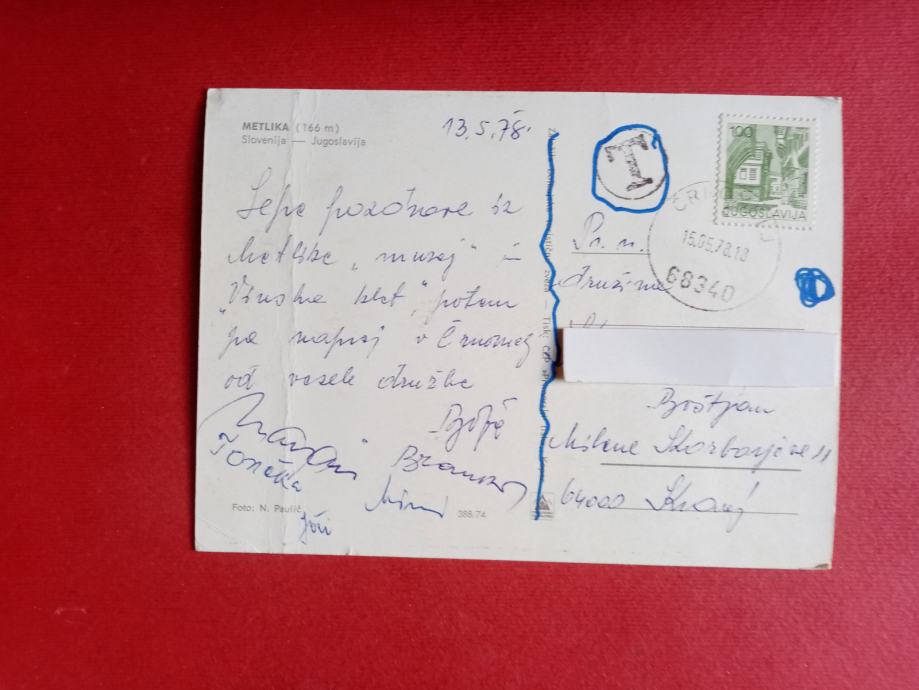 METLIKA (166 m)
Slovenija — Jugoslavija
13.5.78.
Lepe pozdrave iz
Metlike „muzej" in
„Vinska klet", potem
pa naprej v Črnomelj
od vesele družbe
Branko
Tončka
Mimi
Foto: N. Paulič
388/74
T
100
JUGOSLAVIJA
15.05.78.18
68340
Pr. n.
družina
Boštjan
Milene Korbarjeve 11
64000 Kranj